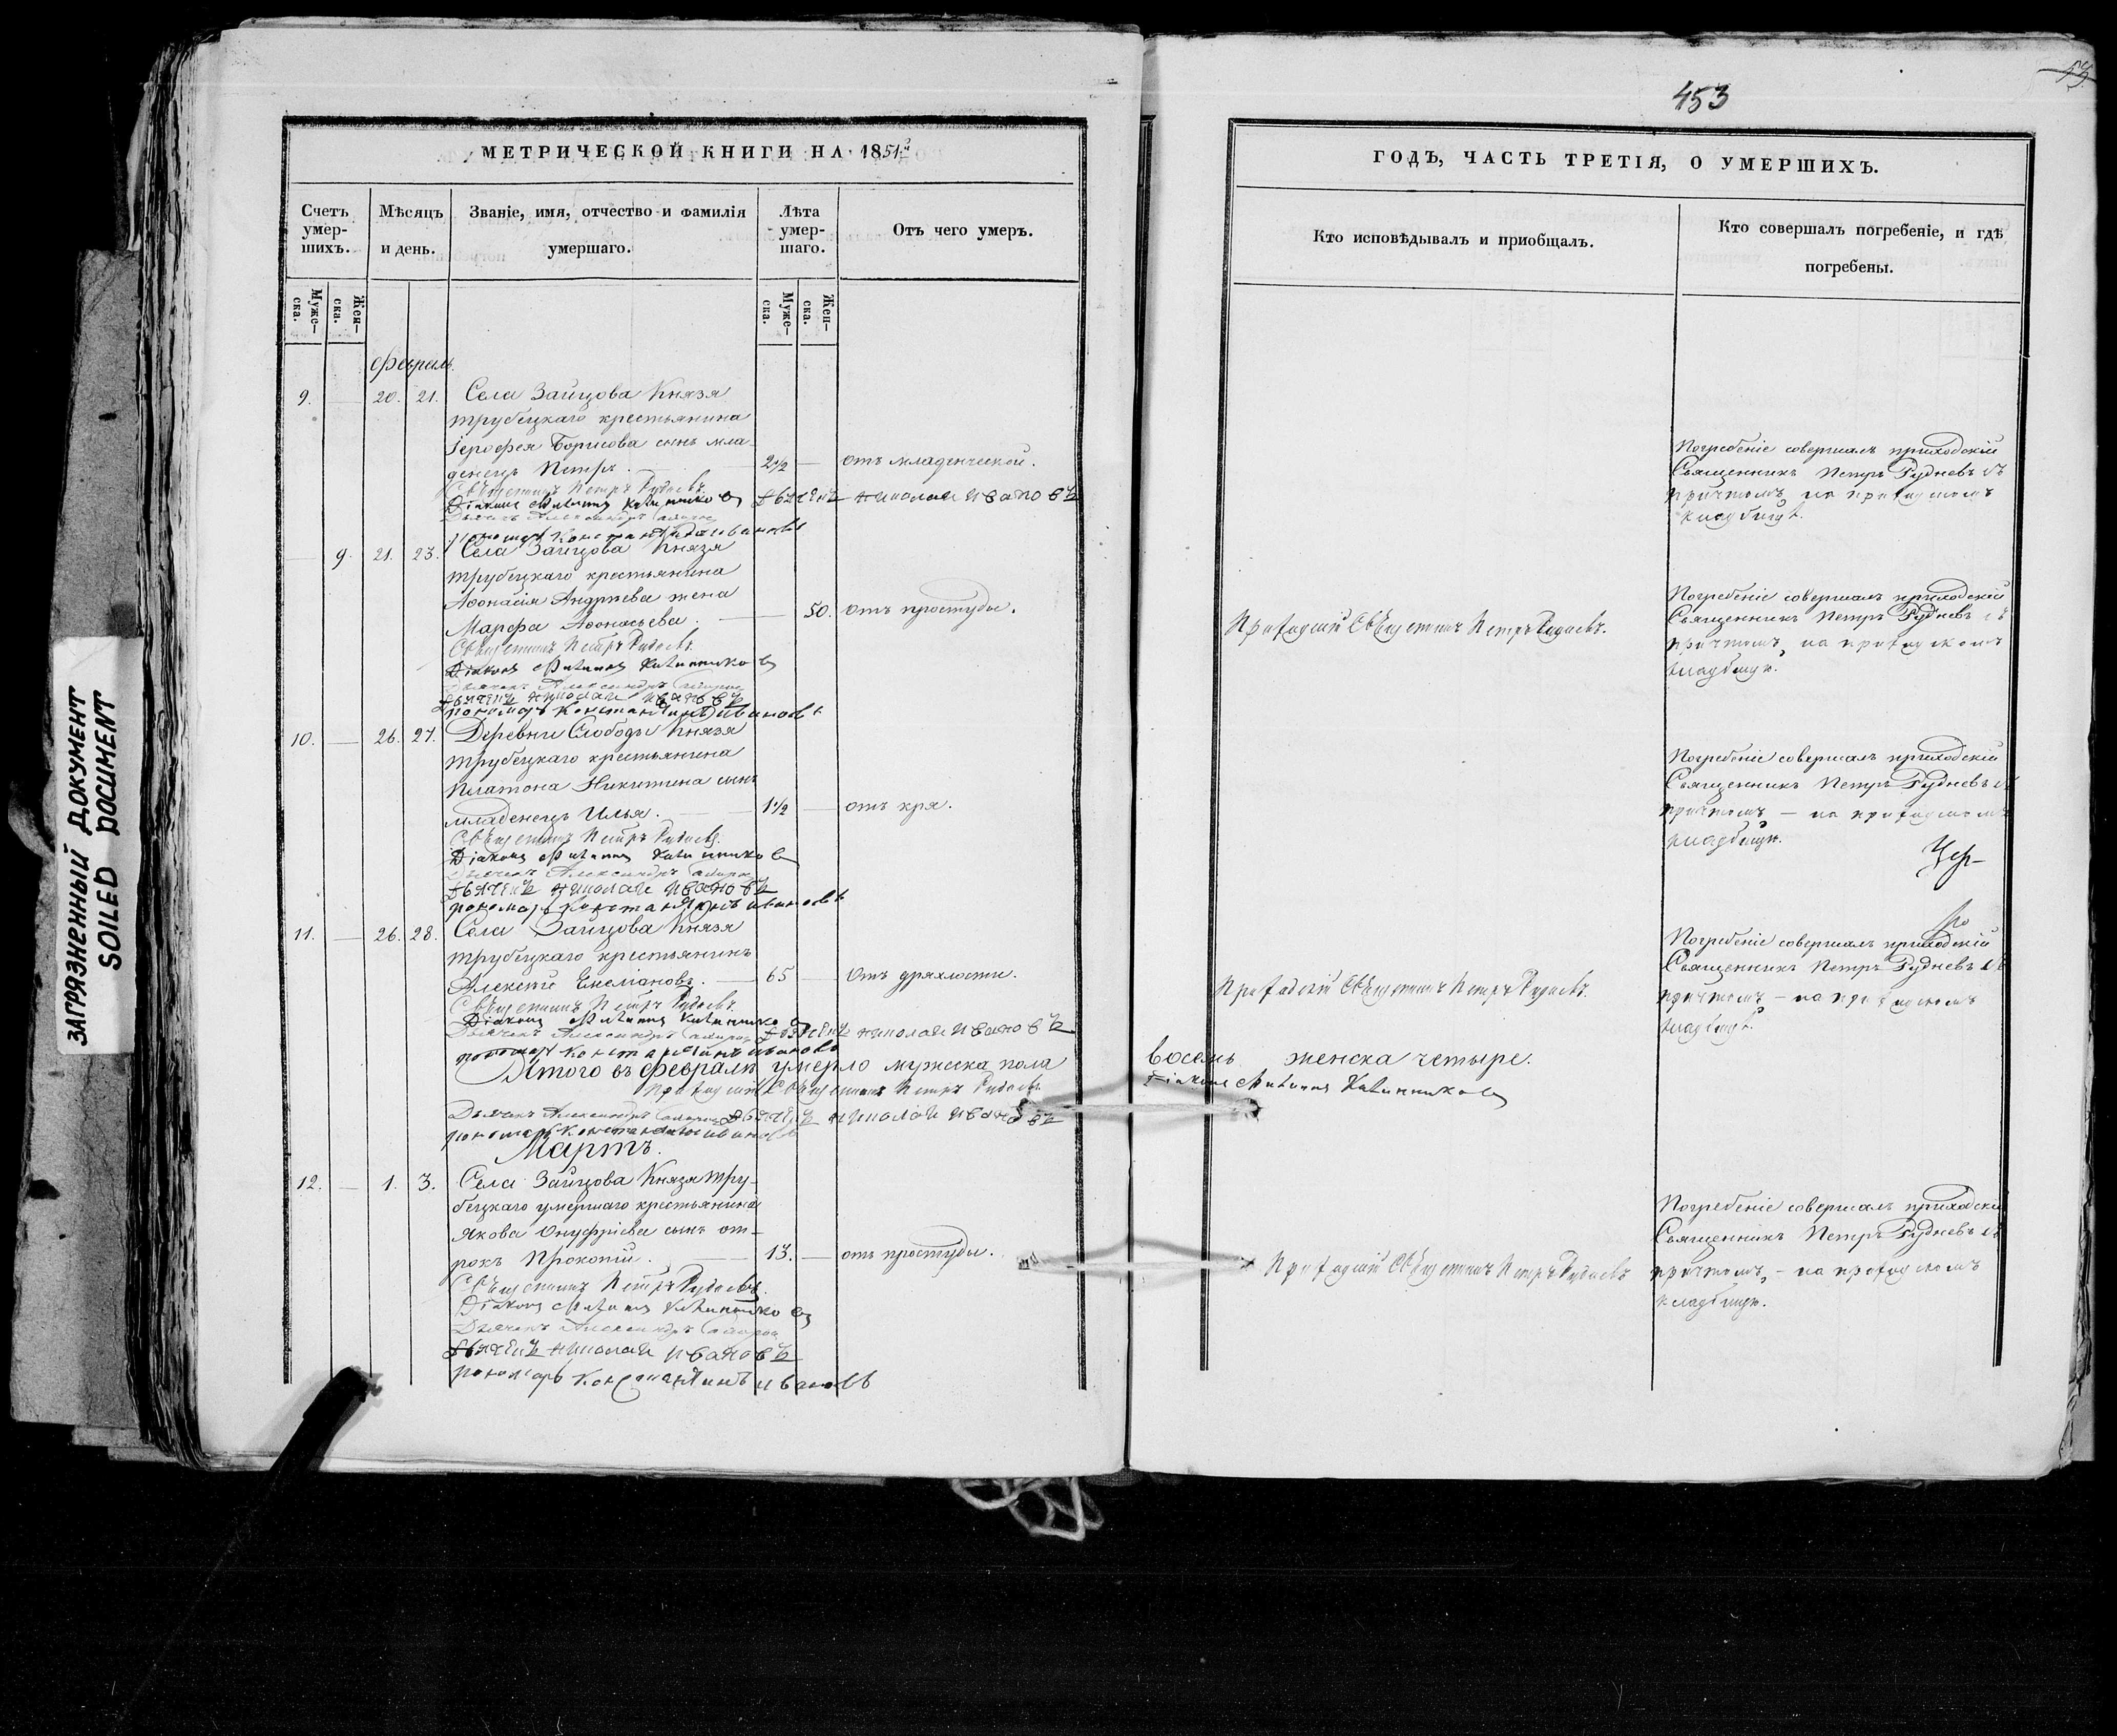 453
МЕТРИЧЕСКОЙ КНИГИ НА 1851й
ГОДЪ, ЧАСТЬ ТРЕТІЯ, О УМЕРШИХЪ.
Счетъ умер-шихъ.
Мѣсяцъ и день.
Званіе, имя, отчество и фамилія умершаго.
Лѣта умер-шаго.
Отъ чего умеръ.
Кто исповѣдывалъ и приобщалъ.
Кто совершалъ погребеніе, и гдѣ погребены.
Муже-ска.
Жен-ска.
Муже-ска.
Жен-ска.
Февраль
9. 20. 21. Села Зайцова Князя
трубецкаго крестьянина
Іерофея Борисова сынъ мла-
денецъ Петръ. 2½ отъ младенческой.
Священникъ Петръ Рудневъ
Діаконъ
Дьячекъ Александръ
дьячекъ николай ивановъ
пономарь Константинъ ивановъ
Погребеніе совершалъ приходскій
Священникъ Петръ Рудневъ съ
причтомъ на приходскомъ
кладбищѣ.
9. 21. 23. Села Зайцова Князя
трубецкаго крестьянина
Афонасія Андреева жена
Марфа Афонасьева. 50. отъ простуды.
Священникъ Петръ Рудневъ
Діаконъ
Дьячекъ Александръ
дьячекъ николай ивановъ
пономарь Константинъ ивановъ
Приходскій Священникъ Петръ Рудневъ.
Погребеніе совершалъ приходскій
Священникъ Петръ Рудневъ съ
причтомъ, на приходскомъ
кладбищѣ.
10. 26. 27. Деревни Слободы Князя
трубецкаго крестьянина
Платона Никитина сынъ
младенецъ Илья. 1½ отъ кря.
Священникъ Петръ Рудневъ.
Діаконъ
Дьячекъ Александръ
дьячекъ николай ивановъ
пономарь Константинъ ивановъ
Погребеніе совершалъ приходскій
Священникъ Петръ Рудневъ съ
причтомъ – на приходскомъ
кладбищѣ.
11. 26. 28. Села Зайцова Князя
трубецкаго крестьянинъ
Алексѣй Емеліановъ. 65 отъ дряхлости.
Священникъ Петръ Рудневъ
Діаконъ
Дьячекъ Александръ
дьячекъ николай ивановъ
пономарь Константинъ ивановъ
Приходскій Священникъ Петръ Рудневъ.
Погребеніе совершалъ приходскій
Священникъ Петръ Рудневъ съ
причтомъ – на приходскомъ
кладбищѣ.
Итого въ февралѣ умерло мужеска пола восемь женска четыре.
Приходскій Священникъ Петръ Рудневъ
Діаконъ
Дьячекъ Александръ
дьячекъ николай ивановъ
пономарь Константинъ ивановъ
Мартъ.
12. 1. 3. Села Зайцова Князя Тру-
бецкаго умершаго крестьянина
Якова Онуфріева сынъ от-
рокъ Прокопій. 13. отъ простуды.
Священникъ Петръ Рудневъ
Діаконъ
Дьячекъ Александръ
дьячекъ николай ивановъ
пономарь Константинъ ивановъ
Приходскій Священникъ Петръ Рудневъ
Погребеніе совершалъ приходскій
Священникъ Петръ Рудневъ съ
причтомъ, – на приходскомъ
кладбищѣ.
ЗАГРЯЗНЕННЫЙ ДОКУМЕНТ
SOILED DOCUMENT